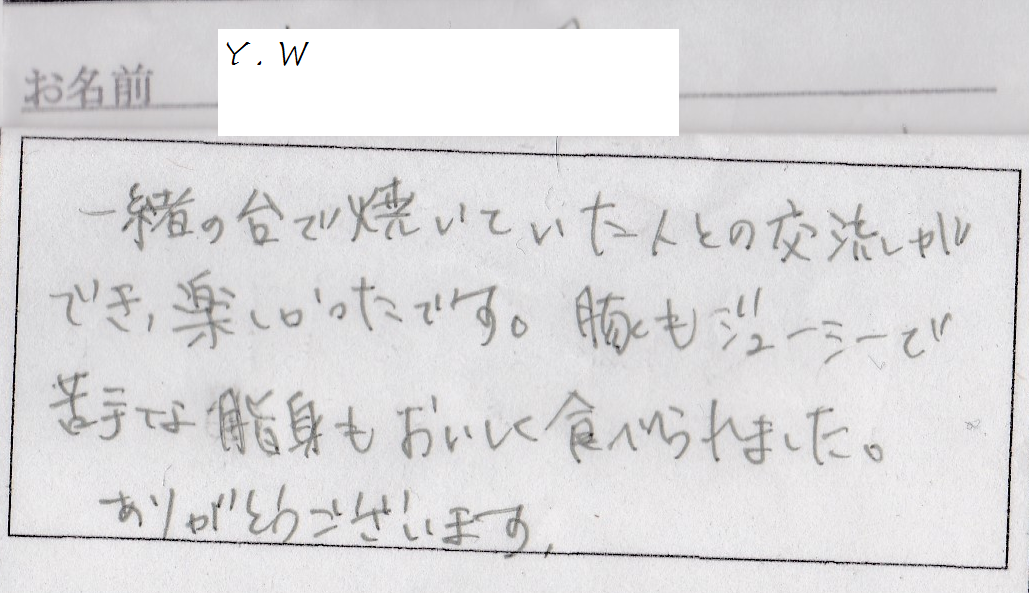 お名前 Y.W
一緒の台で焼いていた人との交流が
でき、楽しかったです。豚もジューシーで
苦手な脂身もおいしく食べられました。
ありがとうございます、